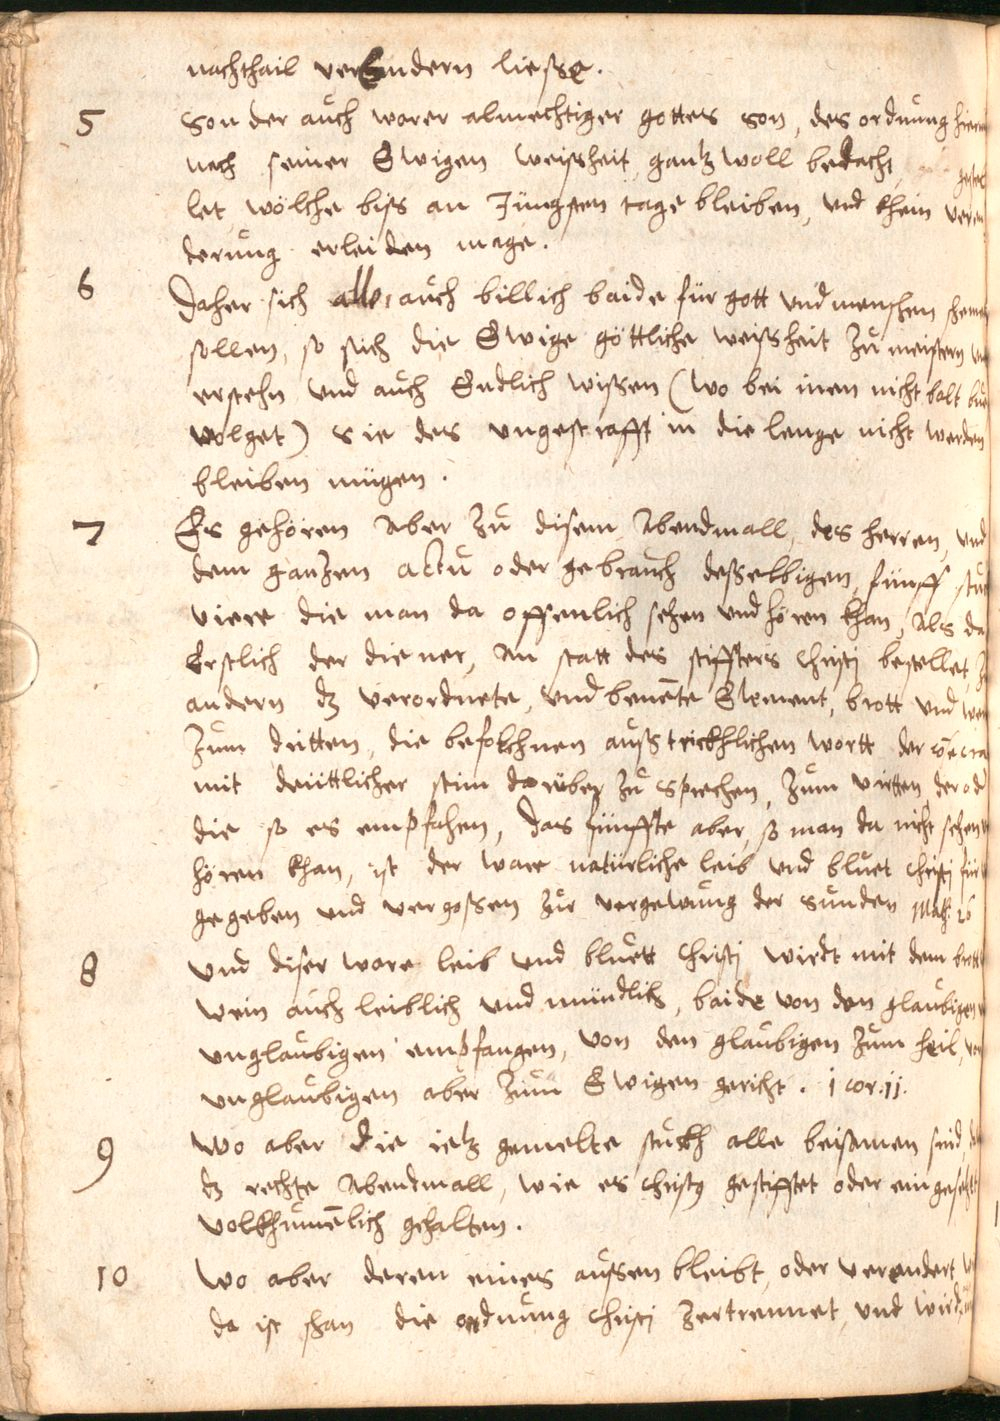 nachthail verEndern liesse.
5 Sonder auch warer almechtiger gottes son, des ordnung hierin
nach seiner Ewigen weissheit gantz woll bedacht,
let, wölche biss an Jüngsten tage bleiben, vnd khein veren
derung erleiden mage.
6 Daher sich alle, auch billich baide für gott vnd menschen schemen
sollen, so sich die Ewige göttliche weissheit zu meistern
vnd auch Endlich wissen (wo bei inen nicht balt bues
volget) sie des vngestrafft in die lenge nicht werden
bleiben mügen.
7 Es gehören Aber zu disem Abendmall, des herren, vnd
dem ganzen actu oder gebrauch desselbigen, fünff stuck
viere die man da offenlich sehen vnd hören khan, Als da
Erstlich der diener, An statt des stiffters Christi bestellet,
andern dz verordnete, vnd benente Element, brott vnd wein
Zum dritten, die befolchnen ausstrickhlichen wortt der
mit deüttlicher stim darüber zu sprechen, Zum virtten der od
die so es empfahen, Das fünffte aber, so man da nicht sehen
hören khan, ist der ware natürliche leib vnd bluet Christi für
gegeben vnd vergossen zur vergebung der sunden Math: 26
8 Vnd diser ware leib vnd bluett Christi wirdt mit dem brott
wein auch leiblich vnd mündlich, baide von den glaubigen
vnglaubigen empfangen, von den glaubigen zum heil, von
vnglaubigen aber zum Ewigen gericht. 1 cor: 11.
9 Wo aber die ietz gemelte stuckh alle beisamen sind,
dz rechte Abendmall, wie es Christus gestifftet oder eingesetzt
volkhumenlich gehalten.
10 Wo aber deren eines aussen bleibt, oder verendert
da ist schan die ordnung Christi zertrennet, vnd wird